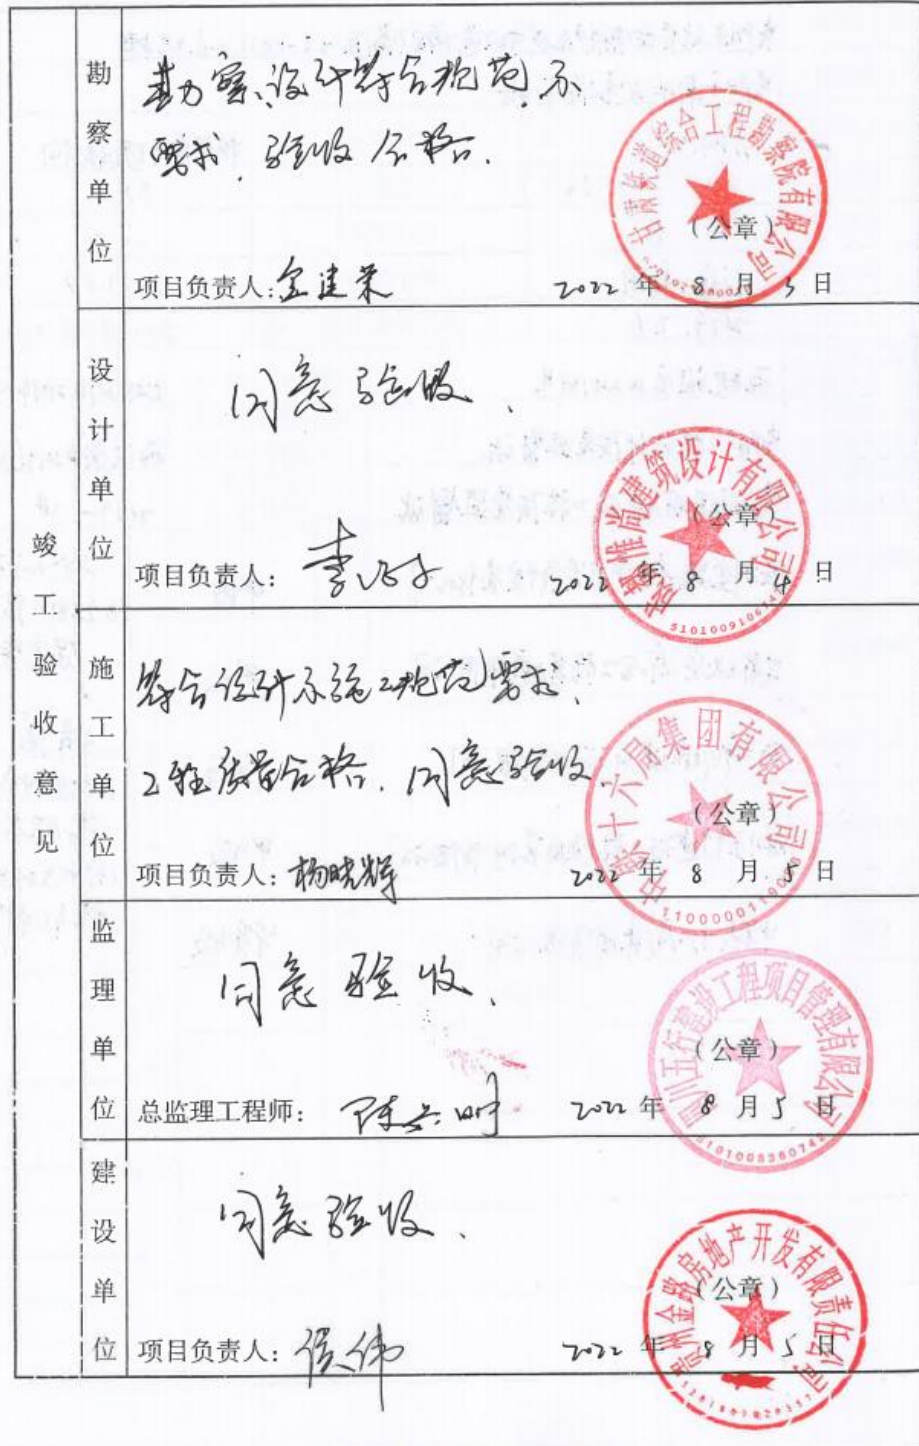 竣工验收意见
勘察单位
勘察、设计符合规范
要求,验收合格.
甘肃铁道综合工程勘察院有限公司
(公章)
项目负责人:金建荣
2022年8月3日
设计单位
同意验收、
建筑设计有限公司
(公章)
5101009106
项目负责人:李
2022年8月4日
施工单位
符合设计 施工规范要求;
工程质量合格. 同意验收
中铁十六局集团有限公司
(公章)
项目负责人:杨晓辉
2022年8月5日
监理单位
同意验收、
四川五行建设工程项目管理有限公司
(公章)
总监理工程师:陈 明
2022年8月5日
建设单位
同意验收、
金路房地产开发有限责任公司
(公章)
项目负责人:侯伟
2022年8月5日